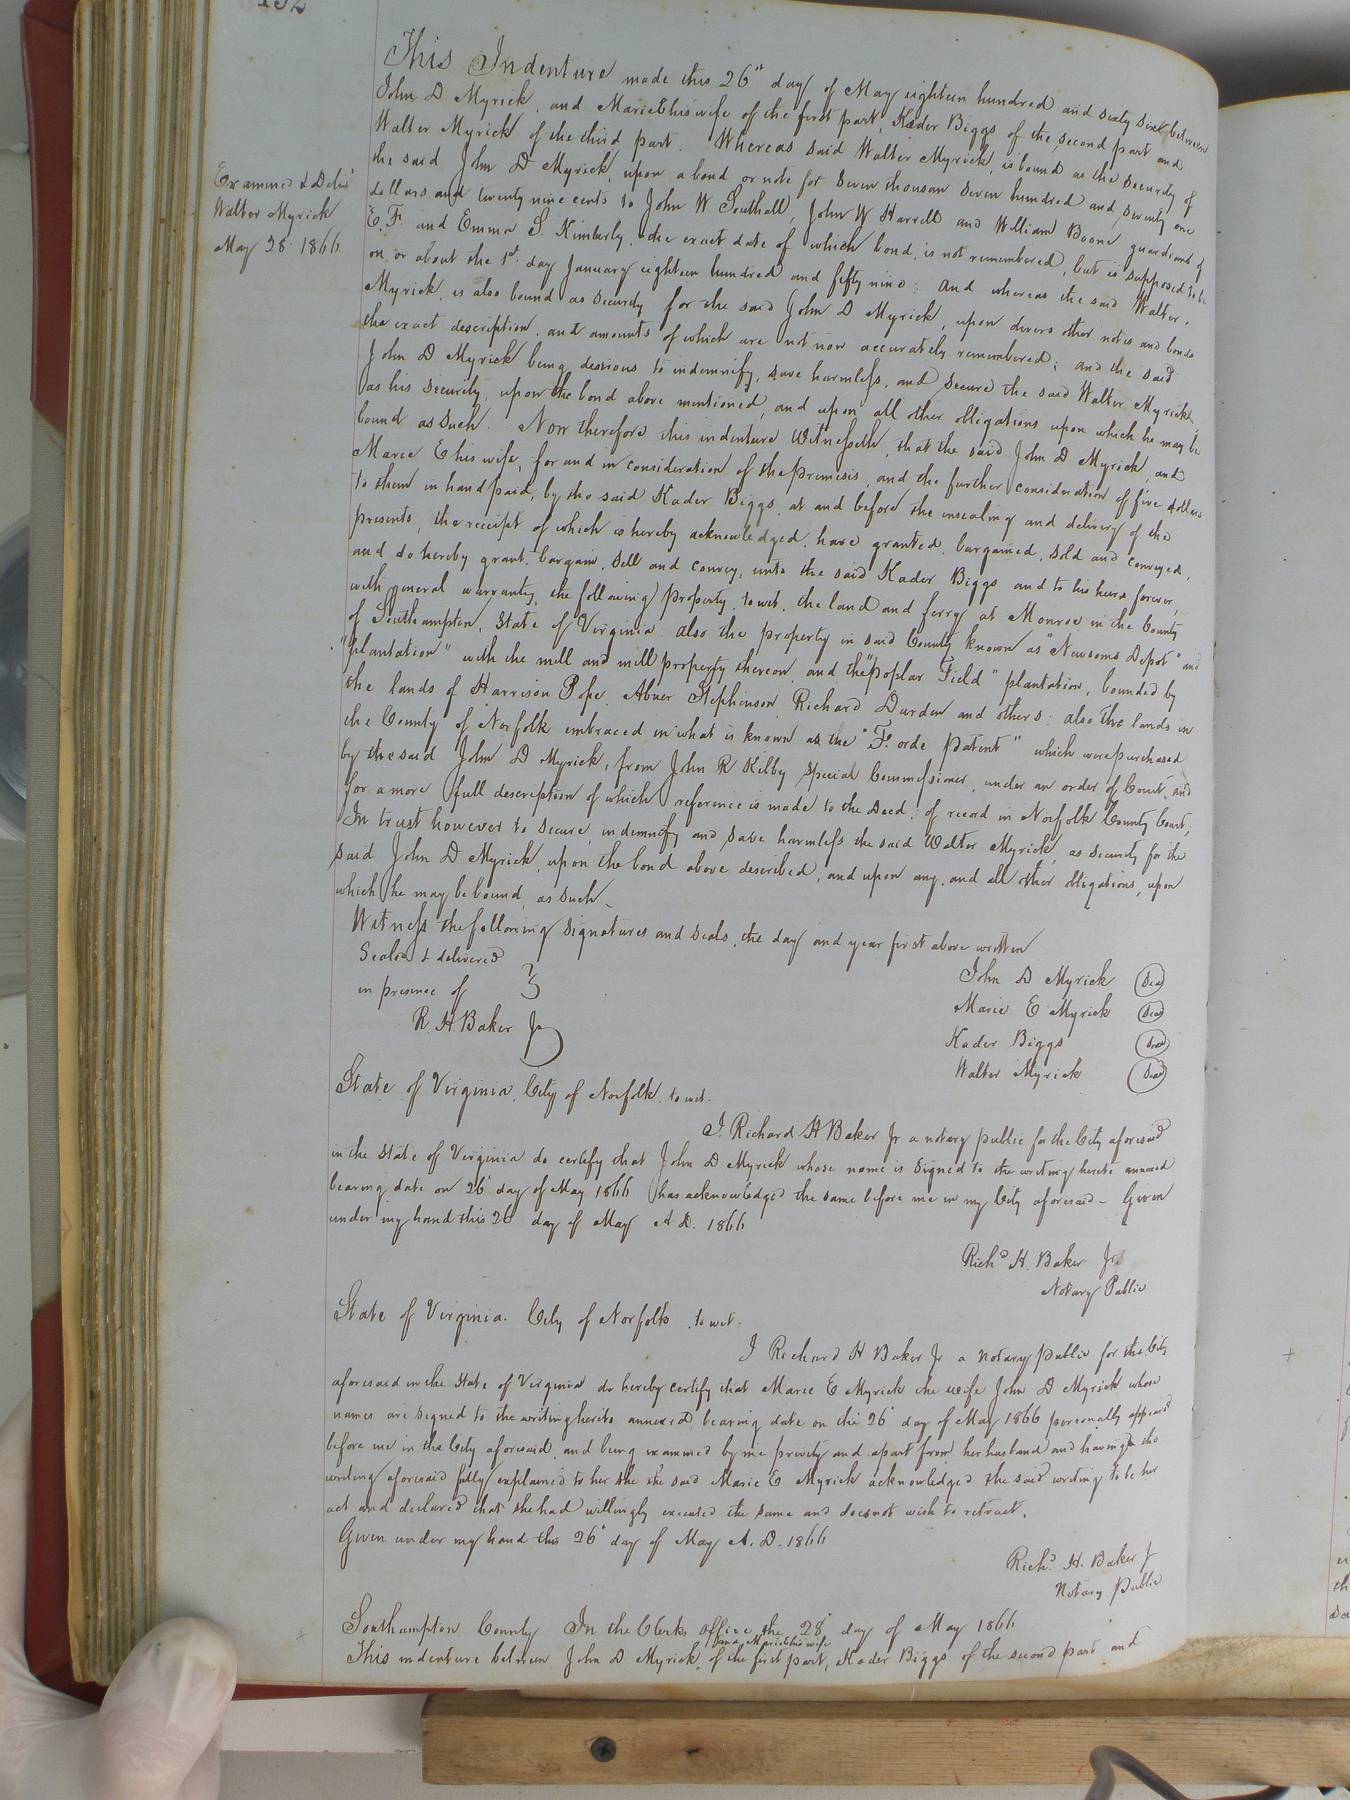 132
This Indenture made this 26" day of May eighteen hundred and sixty six between
John D Myrick, and Marie E his wife of the first part, Kader Biggs of the second part and
Walter Myrick of the third part. Whereas said Walter Myrick, is bound as the security of
the said John D Myrick, upon a bond or note for seven thousan seven hundred and seventy one
dollars and twenty nine cents to John W Southall, John W Harrell and William Boone guardians of
E. F. and Emma S. Kimberly, the exact date of which bond, is not remembered, but is supposed to be
on or about the 1st day January eighteen hundred and fifty nine: and whereas the said Walter
Myrick, is also bound as security for the said John D Myrick, upon divers other notes and bonds
the exact description and amounts of which are not now accurately remembered; and the said
John D Myrick being desirous to indemnify, save harmless, and secure the said Walter Myrick,
as his security, upon the bond above mentioned, and upon all other obligations upon which he may be
bound as such. Now therefore this indenture Witnesseth, that the said John D Myrick, and
Marie E his wife, for and in consideration of the premisis, and the further consideration of five dollars
to them in hand paid, by the said Kader Biggs, at and before the ensealing and delivery of the
presents, the receipt of which is hereby acknowledged, have granted, bargained, sold and conveyed,
and do hereby grant, bargain, sell and convey, unto the said Kader Biggs and to his heirs forever,
with general warranty, the following property, to wit, the land and ferry at Monroe in the County
of Southampton, State of Virginia also the property in said County known as "Newsoms Depot" and
"plantation" with the mill and mill property thereon, and the "Poplar Field" plantation, bounded by
the lands of Harrison Pope, Abner Stephinson, Richard Durden and others: also the lands in
the County of Norfolk embraced in what is known as the "Forde Patent" which were purchased
by the said John D Myrick, from John R Kilby special Commissioner, under an order of Court, and
for a more full description of which reference is made to the Deed, of record in Norfolk County Court,
In trust however to secure, indemnify and save harmless the said Walter Myrick, as security for the
said John D Myrick, upon the bond above described, and upon any, and all other obligations, upon
which he may be bound, as such.
Witness the following signatures and seals, the day and year first above written
Sealed & delivered
in presence of
R H Baker Jr
John D Myrick Seal
Marie E Myrick Seal
Kader Biggs Seal
Walter Myrick Seal
Examined & Deliv'd
Walter Myrick
May 28 1866
State of Virginia, City of Norfolk, to wit.
I, Richard H Baker Jr a notary public for the City aforesaid
in the State of Virginia do certify that John D Myrick whose name is signed to the writing hereto annexed
bearing date on 26 day of May 1866 has acknowledged the same before me in my City aforesaid - Given
under my hand this 26 day of May A D. 1866
Richd H. Baker Jr
Notary Public
State of Virginia. City of Norfolk to wit.
I Richard H Baker Jr a notary public for the City
aforesaid in the State of Virginia do hereby certify that Marie E Myrick the wife John D Myrick whose
names are signed to the writing hereto annexed, bearing date on the 26 day of May 1866 personally appeard
before me in the City aforesaid and being examined by me privily and apart from her husband and having the
writing aforesaid fully explained to her she the said Marie E Myrick acknowledged the said writing to be her
act and declared that she had willingly executed the same and does not wish to retract.
Given under my hand this 26 day of May A. D. 1866
Richd H. Baker J
Notary Public
Southampton County In the Clerks office the 28 day of May 1866
and Marie E his wife
This indenture between John D Myrick, of the first part, Kader Biggs of the second part and